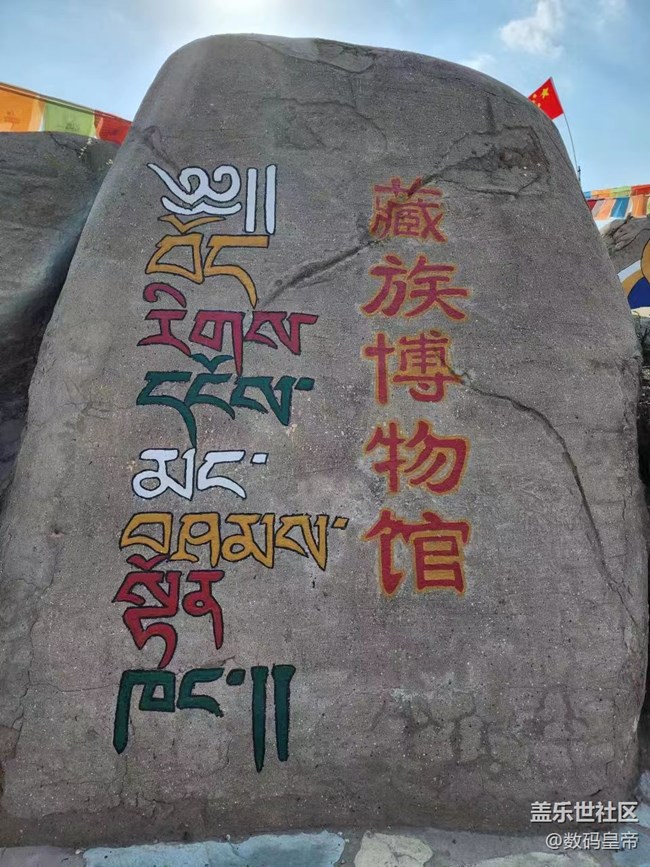 ༄༅།།
བོད་
མང་
བཤམས་
སྟོན་
ཁང་།།
藏族博物馆
盖乐世社区
@数码皇帝